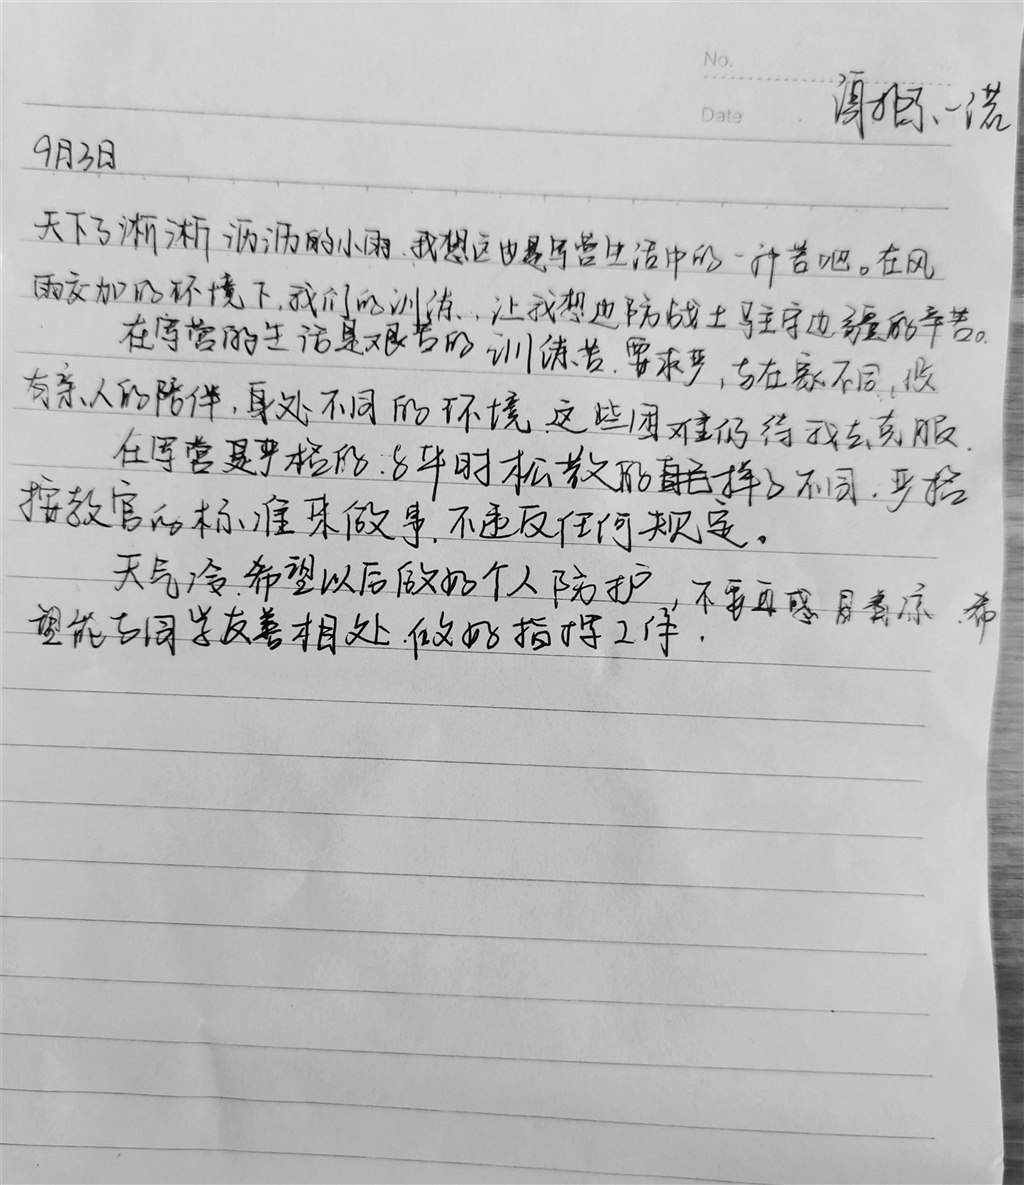 No.
Date
一诺
9月3日
天下了淅淅沥沥的小雨,我想这也是军营生活中的一种苦吧。在风
雨交加的环境下,我们的训练,让我想边防战士驻守边疆的辛苦。
在军营的生活是艰苦的训练苦,要求严,与在家不同,没
有亲人的陪伴,身处不同的环境,这些困难仍待我去克服.
在军营是严格的,与平时松散的样子不同,严格
按教官的标准来做事,不违反任何规定。
天气冷,希望以后做好个人防护,不要再感冒着凉,希
望能与同学友善相处,做好指挥工作.